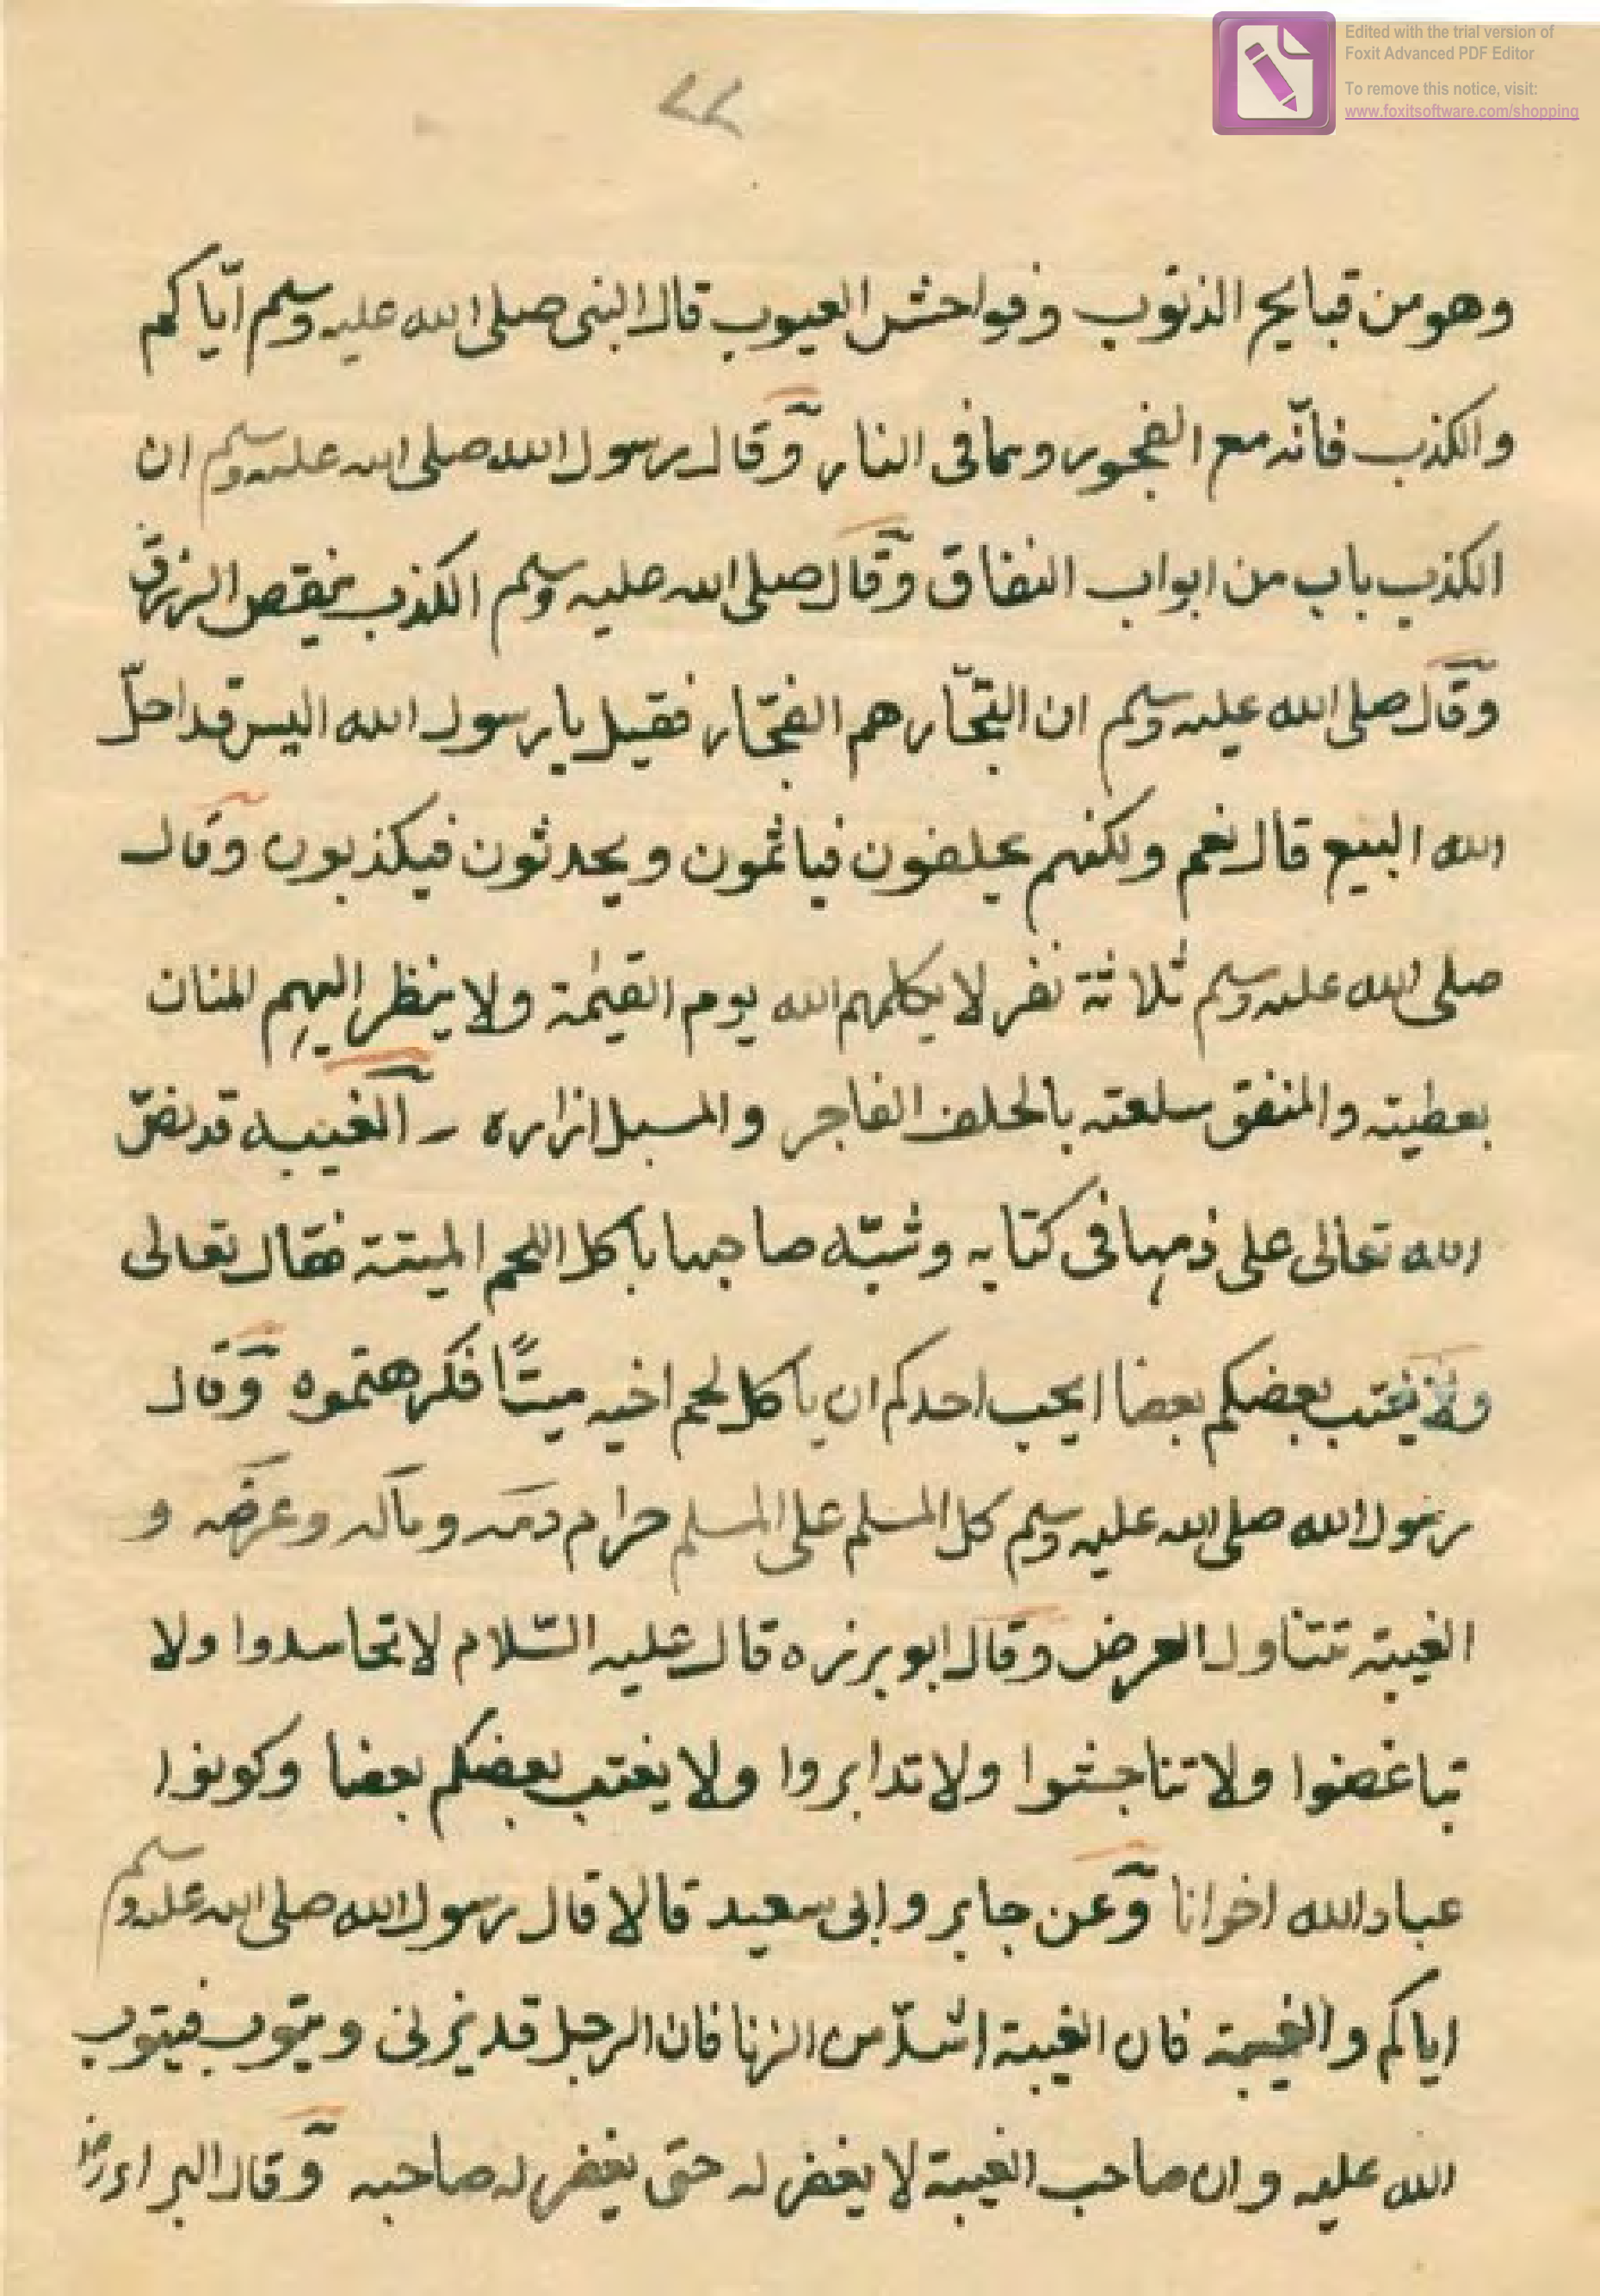 Edited with the trial version of
Foxit Advanced PDF Editor
To remove this notice, visit:
www.foxitsoftware.com/shopping
وهو من قبايح الذنوب وفواحش العيوب قال النبى صلى الله عليه وسلم ايّاكم
والكذب فانّه مع الفجور وهما فى النار وقال رسول الله صلى الله عليه وسلم ان
الكذب باب من ابواب النفاق وقال صلى الله عليه وسلم الكذب ينقص الرزق
وقال صلى الله عليه وسلم ان التجّار هم الفجّار فقيل يا رسول الله اليس قد احلّ
الله البيع قال نعم ولكنهم يحلفون فياثمون ويحدثون فيكذبون وقال
صلى الله عليه وسلم ثلاثة نفر لا يكلمهم الله يوم القيمة ولا ينظر اليهم المنان
بعطيته والمنفق سلعته بالحلف الفاجر والمسبل ازاره الغيبه قد نصّ
الله تعالى على ذمها فى كتابه وشبّه صاحبها باكل اللحم الميتة فقال تعالى
ولا يغتب بعضكم بعضا ايحب احدكم ان ياكل لحم اخيه ميتًا فكرهتموه وقال
رسول الله صلى الله عليه وسلم كل المسلم على المسلم حرام دمه وماله وعرضه و
الغيبة تتناول العرض وقال ابو برزه قال عليه السّلام لا تحاسدوا ولا
تباغضوا ولا تناجشوا ولا تدابروا ولا يغتب بعضكم بعضا وكونوا
عباد الله اخوانا وعن جابر وابى سعيد قالا قال رسول الله صلى الله عليه وسلم
اياكم والغيبة فان الغيبة اشدّ من الزنا فان الرجل قد يزنى ويتوب فيتوب
الله عليه وان صاحب الغيبة لا يغفر له حتى يغفر له صاحبه وقال البراء رض